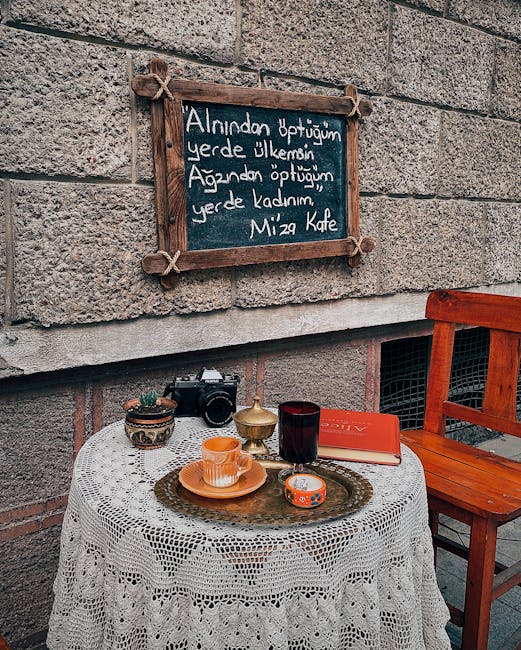 "Alnından öptüğüm
yerde ülkemsin
Ağzından öptüğüm
yerde kadınım"
Mi'za Kafe
Alice